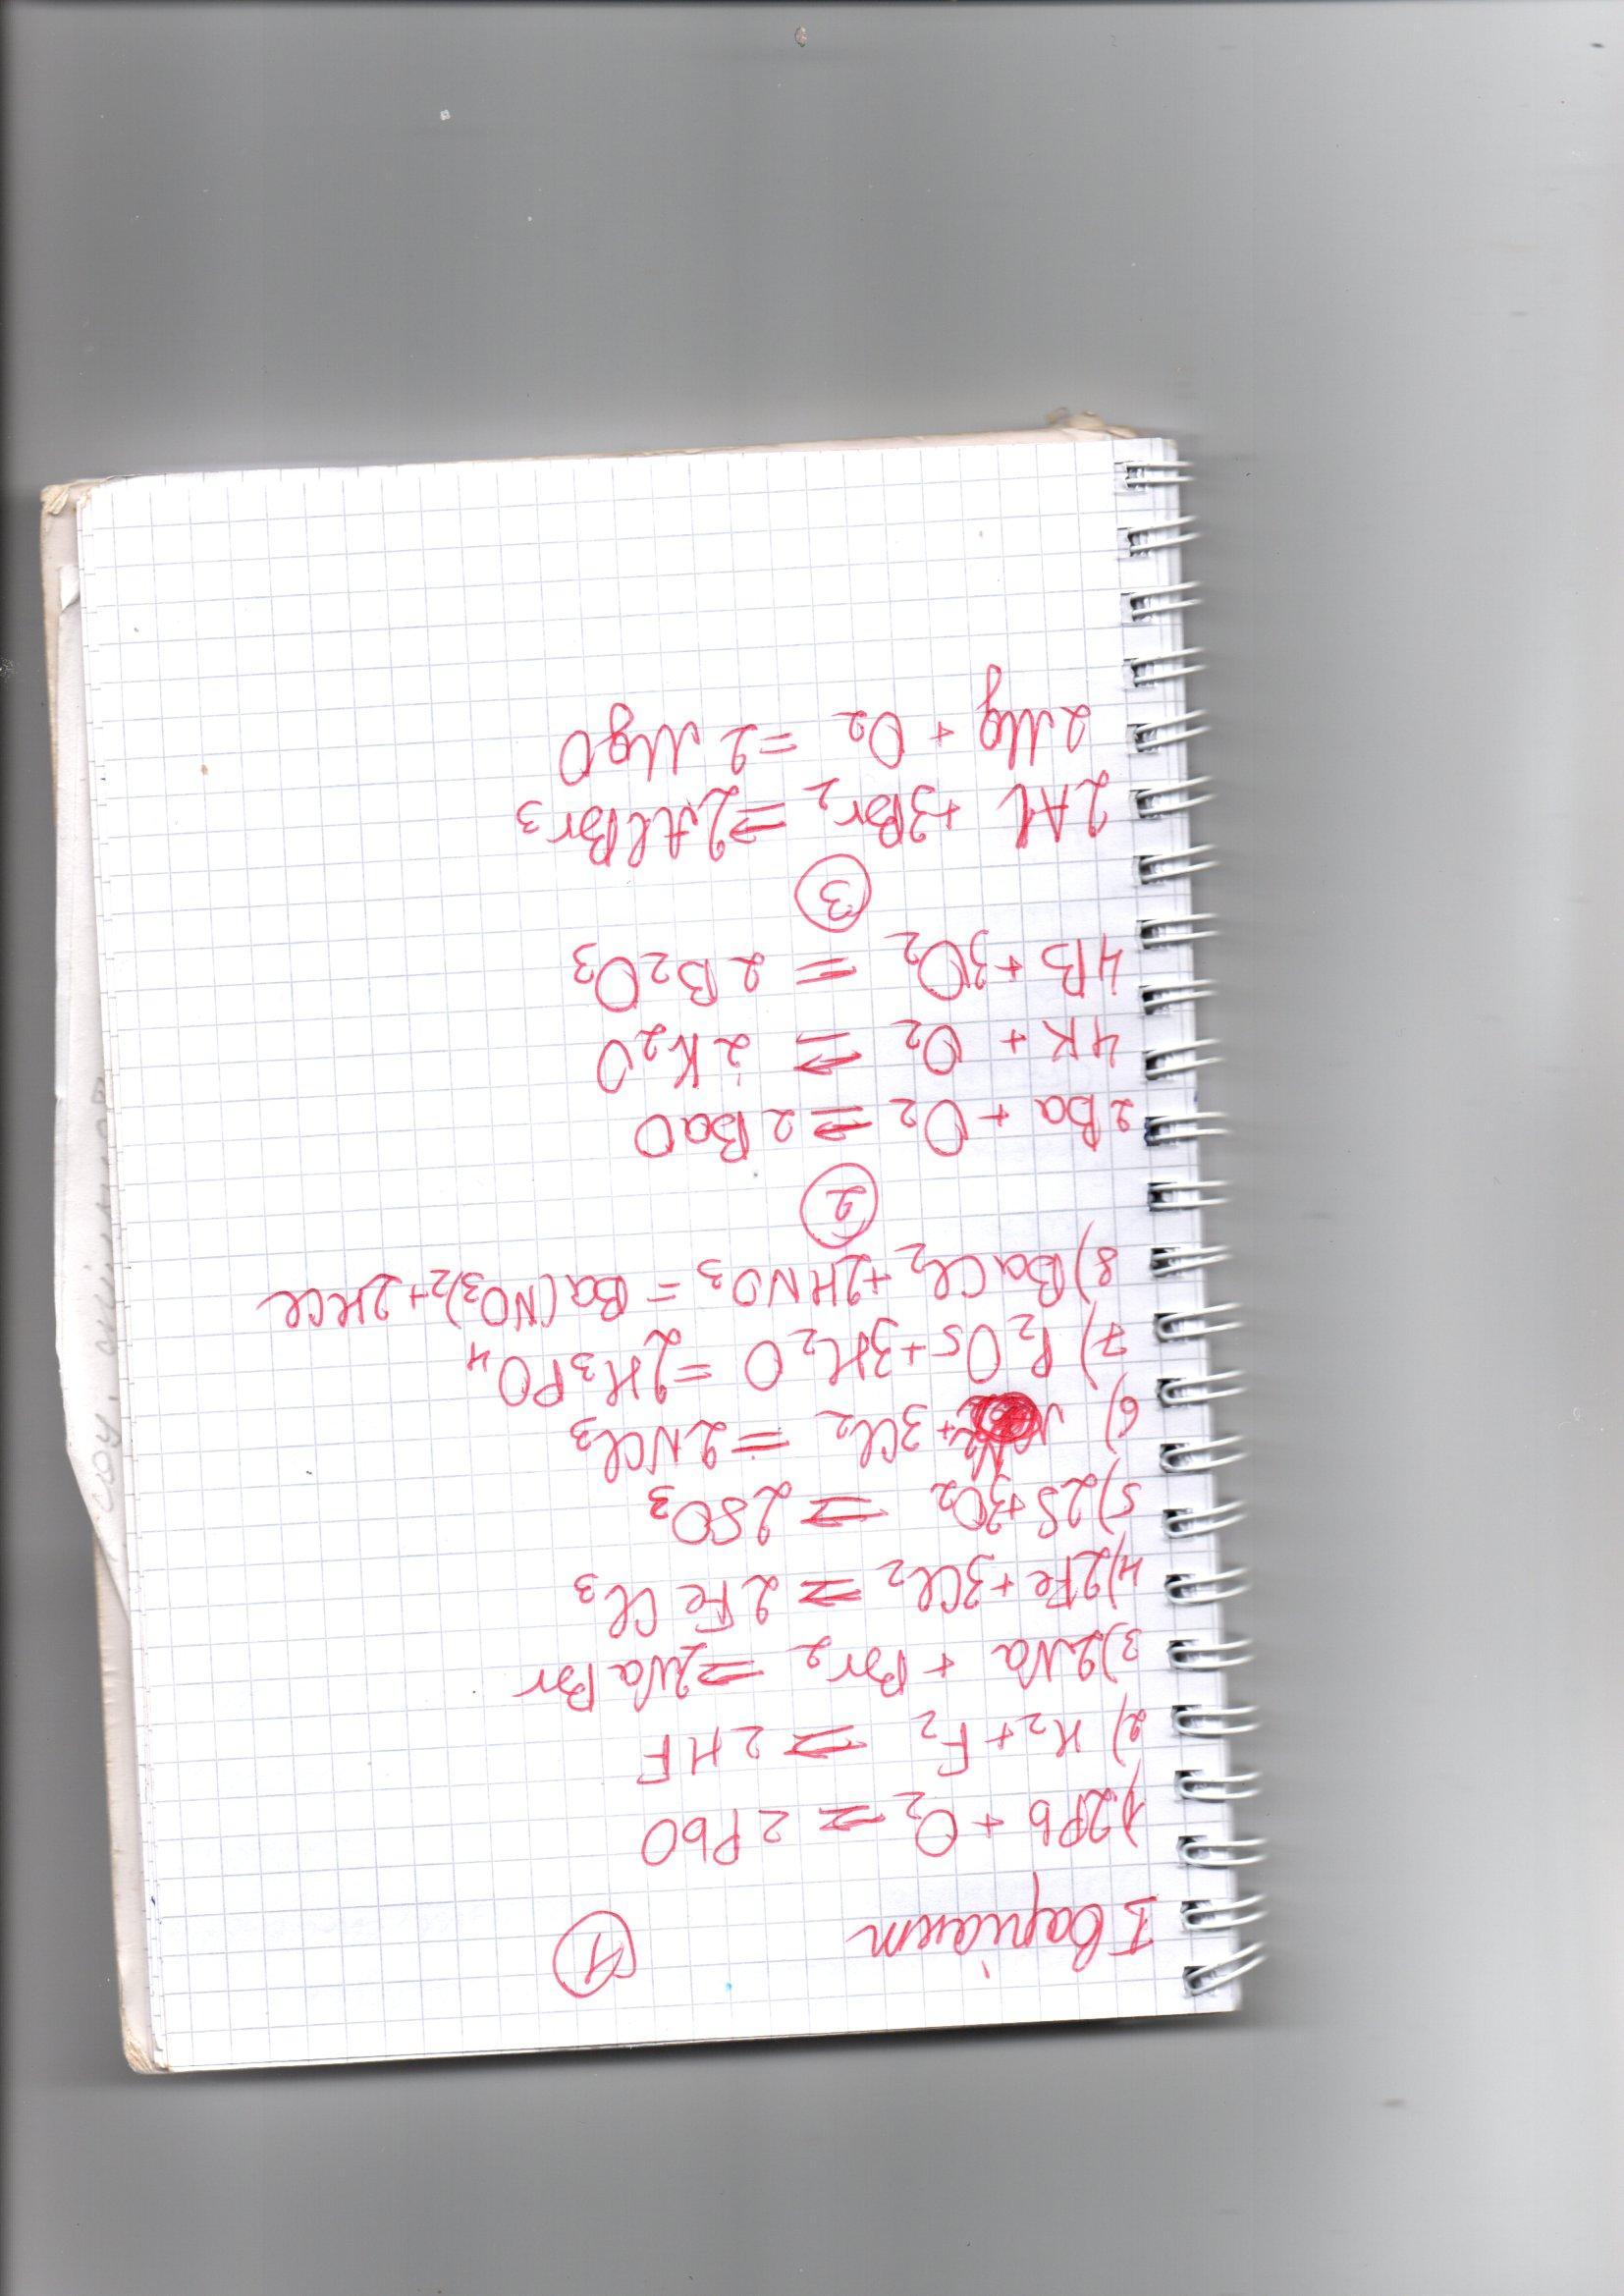 I варіант
①
1) 2Pb + O₂ = 2PbO
2) H₂ + F₂ = 2HF
3) 2Na + Br₂ = 2NaBr
4) 2Fe + 3Cl₂ = 2FeCl₃
5) 2S + 3O₂ = 2SO₃
6) N₂ + 3Cl₂ = 2NCl₃
7) P₂O₅ + 3H₂O = 2H₃PO₄
8) BaCl₂ + 2HNO₃ = Ba(NO₃)₂ + 2HCl
②
2Ba + O₂ = 2BaO
4K + O₂ = 2K₂O
4B + 3O₂ = 2B₂O₃
③
2Al + 3Br₂ = 2AlBr₃
2Mg + O₂ = 2MgO